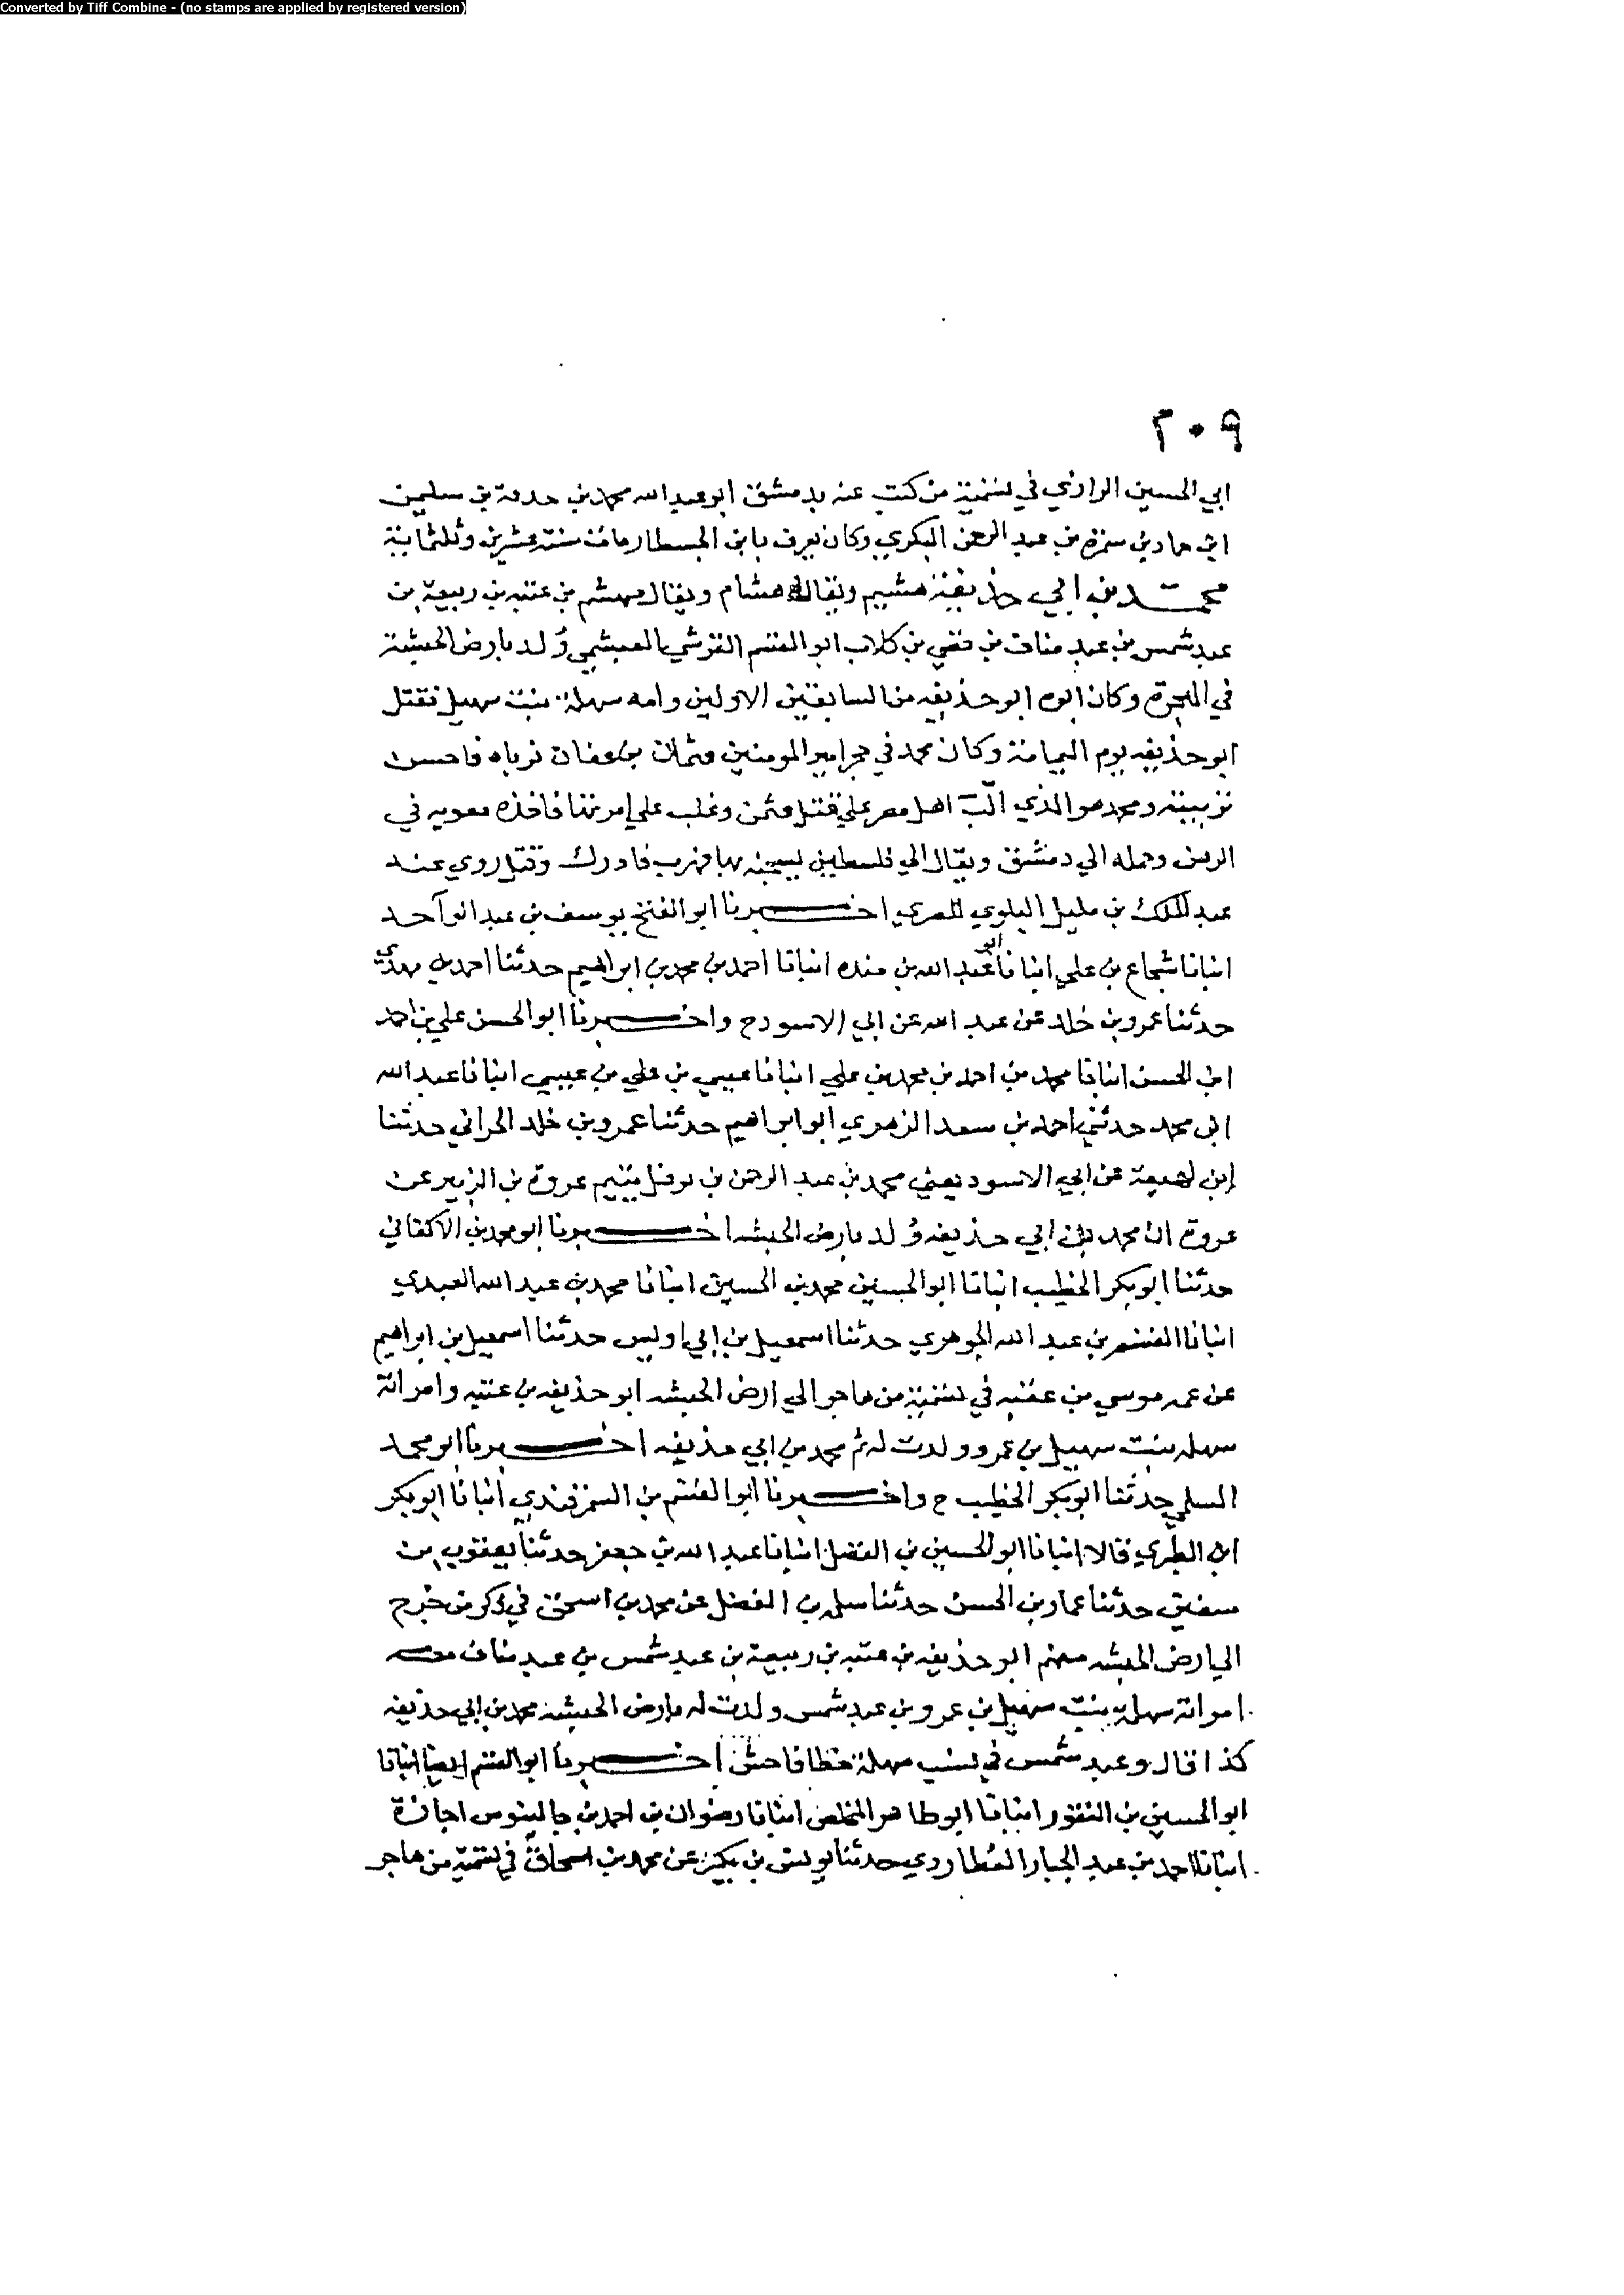 Converted by Tiff Combine - (no stamps are applied by registered version)
٢٠٩
ابي الحسين الرازي في تسمية من كتب عنه بدمشق ابو عبد الله محمد بن حدقة بن سليمن
ابن حماد بن سمرة بن عبد الرحمن البكري وكان يعرف بابن الجسطار مات سنة عشرين وثلثماية
محمد بن ابي حذيفة هشيم ويقال هشام ويقال مهشم بن عتبه بن ربيعة بن
عبد شمس بن عبد مناف بن قصي بن كلاب ابو القسم القرشي العبشمي وُلد بارض الحبشة
في الهجرة وكان ابوه ابو حذيفه من السابقين الاولين وامه سهلة بنت سهيل فقتل
ابو حذيفه يوم اليمامة وكان محمد في حجر امير المومنين عثمان بن عفان فرباه فاحسن
تربيته ومحمد هو الذي الّب اهل مصر علي قتل عثمن وغلب علي امرتها فاخذه معويه في
الرهن وحمله الي دمشق ويقال الي فلسطين يسجنه بها فهرب فادرك وقتل روي عنه
عبد الملك بن مليل البلوي المصري اخبرنا ابو الفتح يوسف بن عبد الواحد
انبانا شجاع بن علي انبانا ابو عبد الله بن منده انبانا احمد بن محمد بن ابراهيم حدثنا احمد بن مهدي
حدثنا عمرو بن خلد عن عبد الله عن ابي الاسود ح واخبرنا ابو الحسن علي بن احمد
ابن الحسن انبانا محمد بن احمد بن محمد بن علي انبانا عيسي بن علي بن عيسي انبانا عبد الله
ابن محمد حدثني احمد بن سعد الزهري ابو ابراهيم حدثنا عمرو بن خلد الحراني حدثنا
ابن لهيعة عن ابي الاسود يعني محمد بن عبد الرحمن بن نوفل يتيم عروة بن الزبير عن
عروة ان محمد بن ابي حذيفه وُلد بارض الحبشه اخبرنا ابو محمد بن الاكفاني
حدثنا ابو بكر الخطيب انبانا ابو الحسين محمد بن الحسين انبانا محمد بن عبد الله العبدي
انبانا القسم بن عبد الله الجوهري حدثنا اسمعيل بن ابي اويس حدثنا اسمعيل بن ابراهيم
عن عمه موسي بن عقبه في تسمية من هاجر الي ارض الحبشه ابو حذيفه بن عتبه وامراته
سهله بنت سهيل بن عمرو ولدت له ثم محمد بن ابي حذيفه اخبرنا ابو محمد
السلمي حدثنا ابو بكر الخطيب ح واخبرنا ابو القسم بن السمرقندي انبانا ابو بكر
ابن الطبري قالا انبانا ابو الحسين بن الفضل انبانا عبد الله بن جعفر حدثنا يعقوب بن
سفين حدثنا عمار بن الحسن حدثنا سلمه بن الفضل عن محمد بن اسحق في ذكر من خرج
الي ارض الحبشه منهم ابو حذيفه بن عتبه بن ربيعة بن عبد شمس بن عبد مناف معه
امراته سهلة بنت سهيل بن عمرو بن عبد شمس ولدت له بارض الحبشه محمد بن ابي حذيفه
كذا قال وعبد شمس في نسب سهلة خطا فاحش اخبرنا ابو القسم ايضا انبانا
ابو الحسين بن النقور انبانا ابو طاهر المخلص انبانا رضوان بن احمد بن جالينوس اجازة
انبانا احمد بن عبد الجبار العُطاردي حدثنا يونس بن بكير عن محمد بن اسحاق في تسمية من هاجر